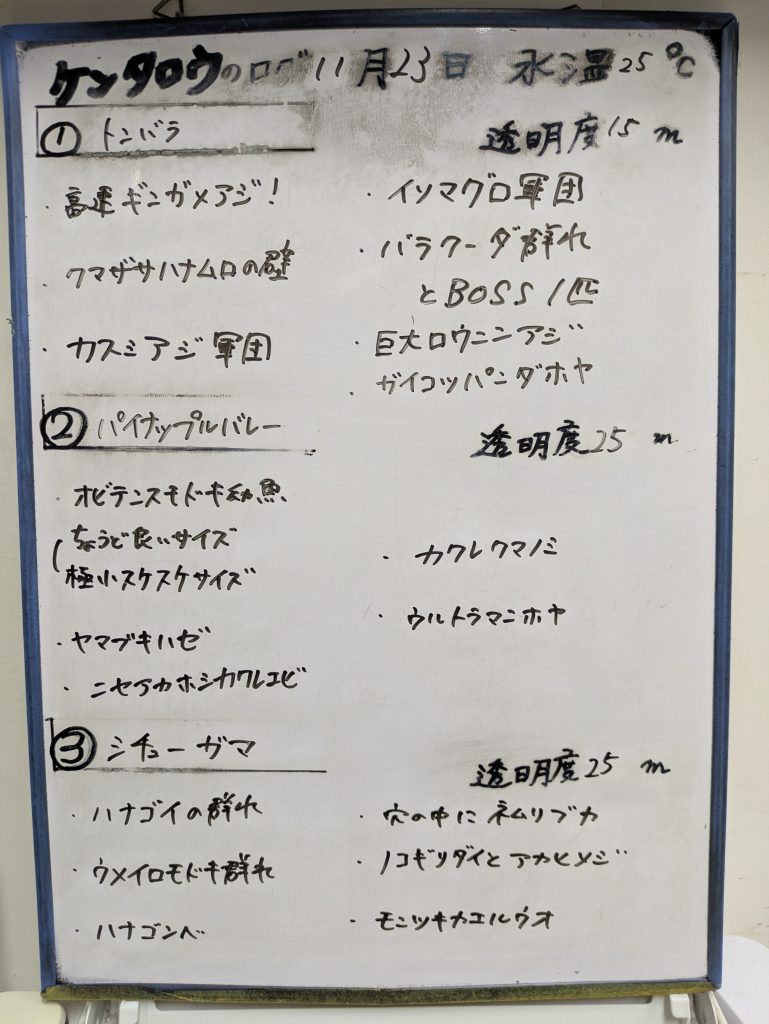 ケンタロウのログ 11月23日 水温25℃
① トンバラ
透明度15m
・高速ギンガメアジ!
・クマザサハナムロの壁
・カスミアジ軍団
・イソマグロ軍団
・バラクーダ群れ
とBOSS1匹
・巨大ロウニンアジ
・ガイコツパンダホヤ
② パイナップルバレー
透明度25m
・オビテンスモドキ幼魚
ちょうど良いサイズ
極小スケスケサイズ
・ヤマブキハゼ
・ニセアカホシカクレエビ
・カクレクマノミ
・ウルトラマンホヤ
③ シチューガマ
透明度25m
・ハナゴイの群れ
・ウメイロモドキ群れ
・ハナゴンベ
・穴の中にネムリブカ
・ノコギリダイとアカヒメジ
・モンツキカエルウオ